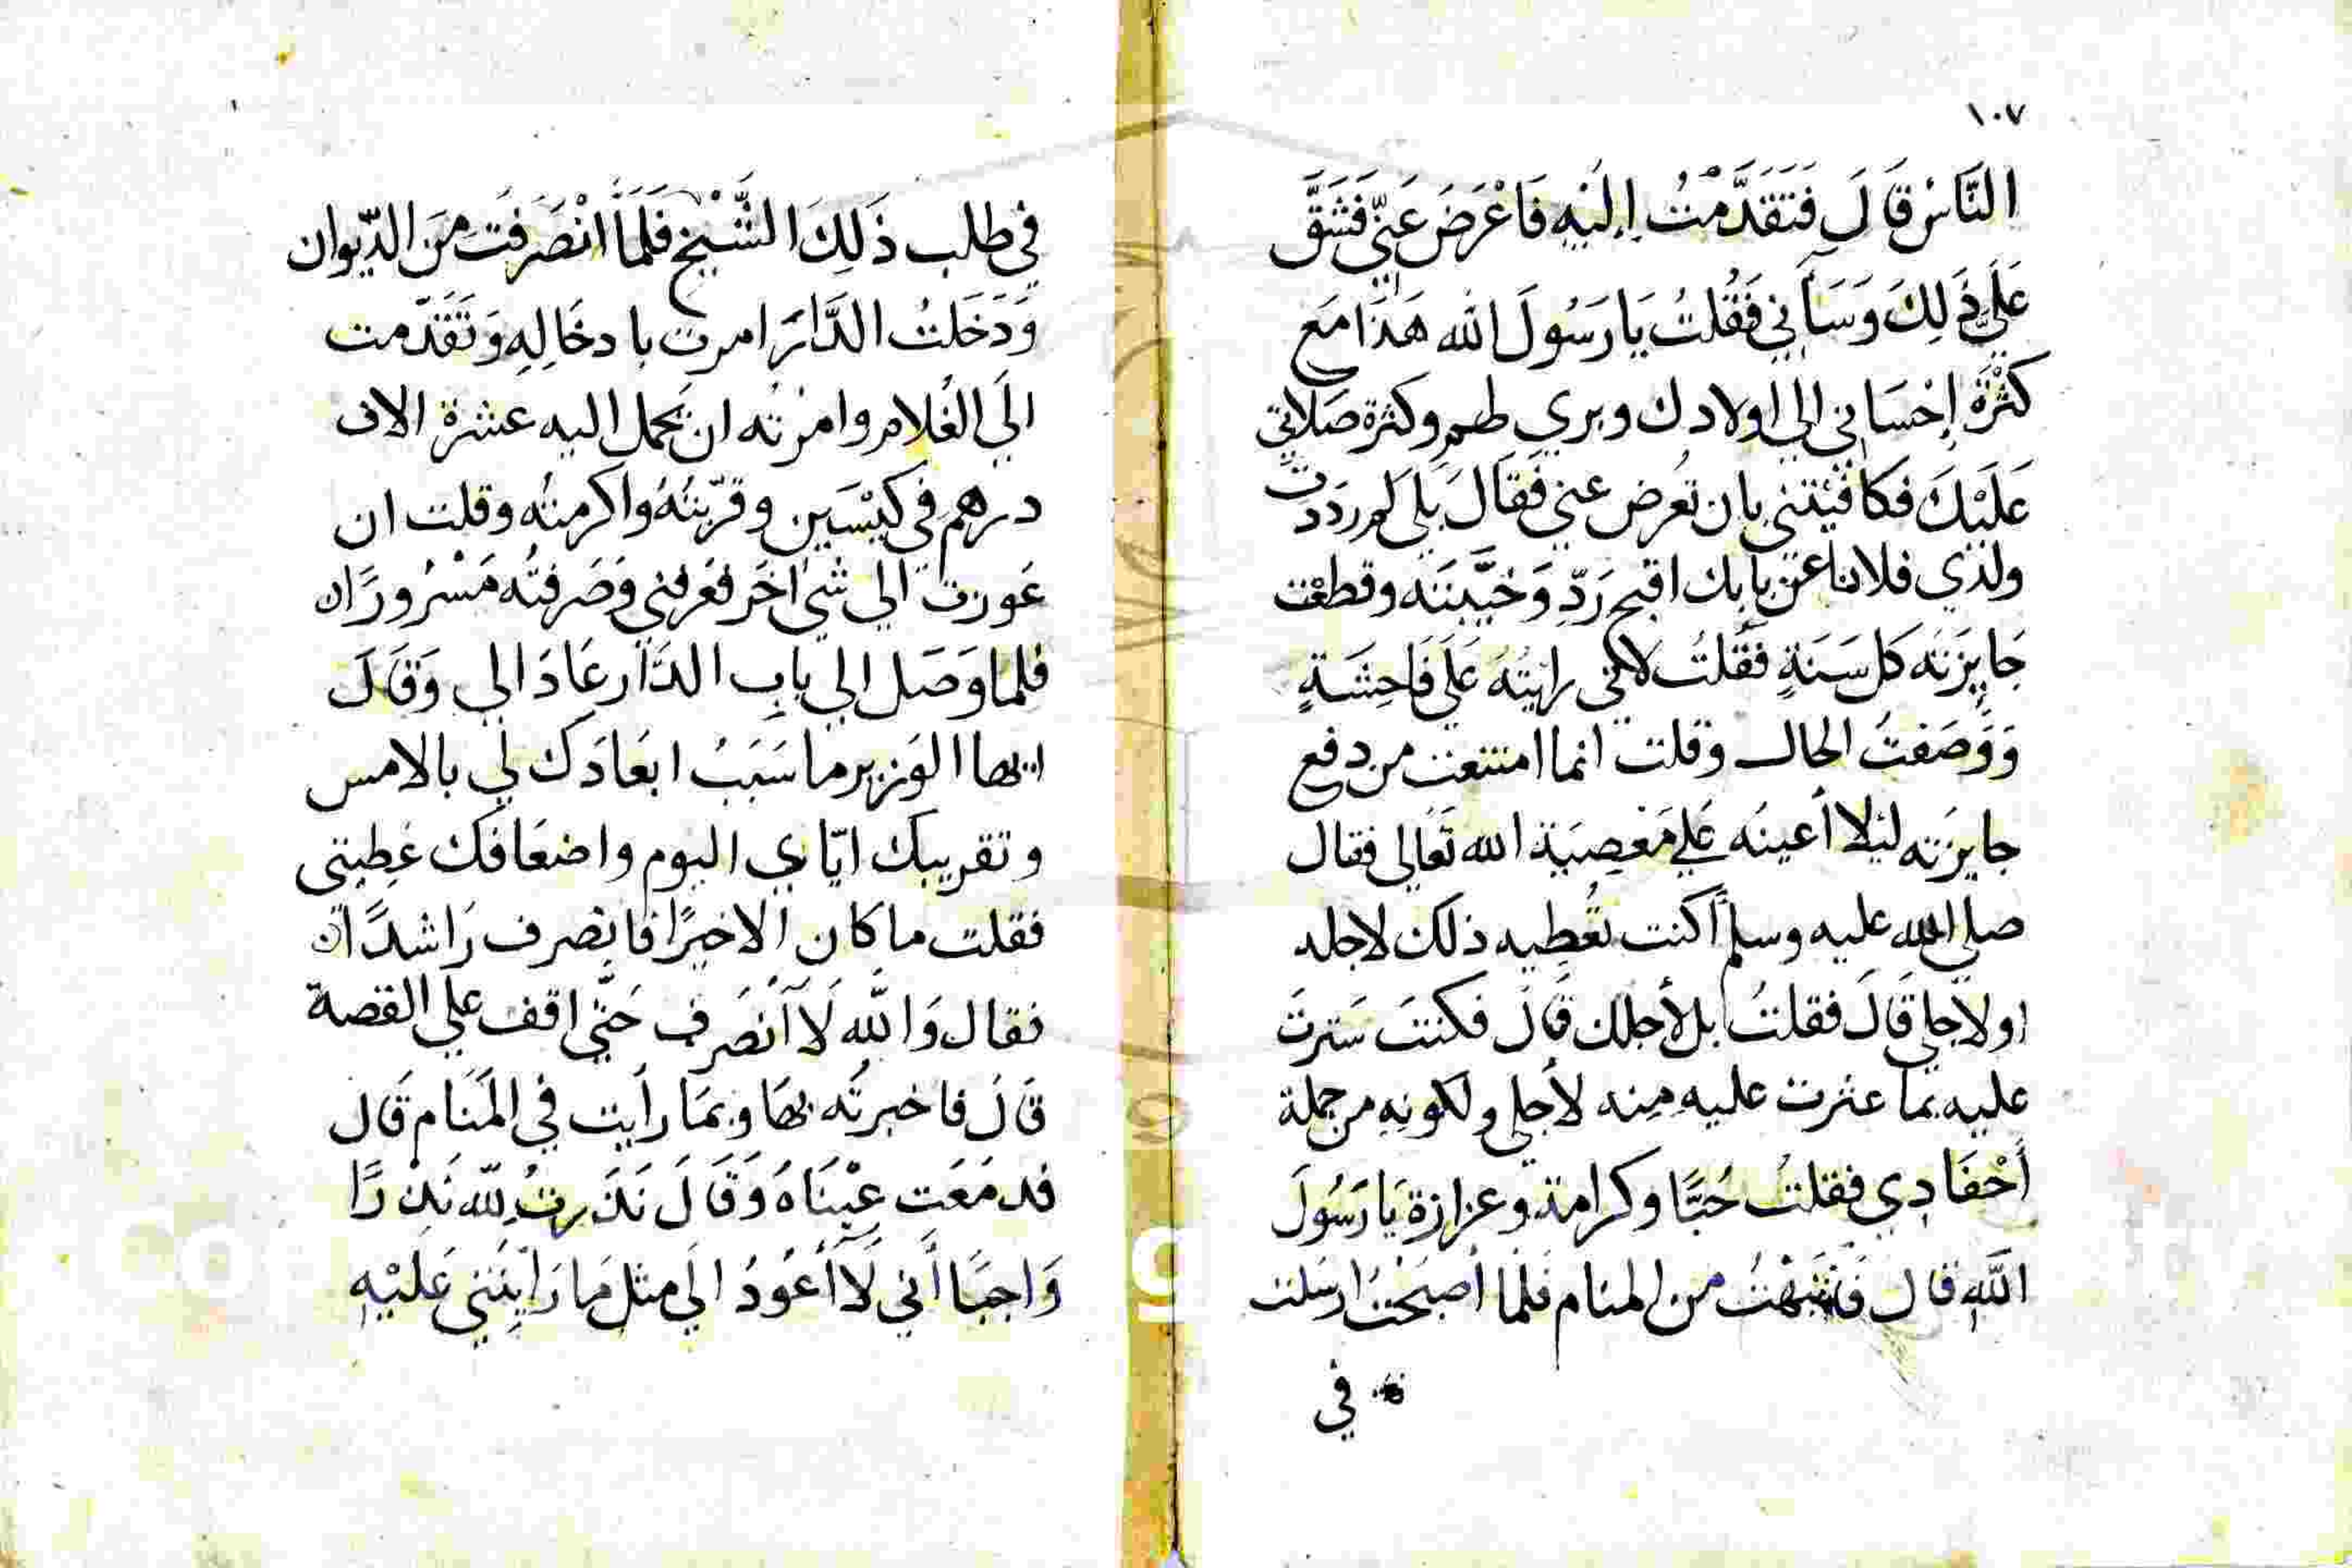 ١٠٧
النَّاسُ قَالَ فَتَقَدَّمْتُ إِلَيْهِ فَاَعْرَضَ عَنّيِ فَشَقَّ
عَلَيَّ ذَلِكَ وَسَآَنِي فَقُلتُ يَا رَسُولَ الله هَذَا مَع
كَثْرَةِ إِحْسَانِي الي اولادك وبري لهم وكثرة صَلاتِي
عَلَيْكَ فكافيْتني بان تُعرض عني فَقَالَ بَلَي لم رَدَدتَّ
ولدي فلانا عَن بابك اقبح رَدّ وَخَيَّبتَه وقطعْت
جَايِزَتَه كل سَنَةٍ فقُلتُ لانّي رايتُهُ عَلَي فَاحِشَةٍ
وَوَصَفتُ الحال وقلت انما امتنعت من دفع
جايزَته ليَلا أُعينَه عَلي مَعصِيَة الله تَعَالي فقال
صلي الله عليه وسلم أكنت تُعطِيه ذلك لاجله
او لاجلي قَالَ فقلتُ بل لأجلك قَالَ فكنتَ سَترتَ
عليه بما عثرت عليه مِنه لأجلي ولكونِه من جملة
أَحْفَادِي فقلتُ حُبًّا وكرامة وعزازة يَا رَسُولَ
اللَّهِ قال فَانتَبهْتُ من المنام فلَما أصبَحْتُ ارسَلت
في
في طلب ذَلِكَ الشَّيْخ فَلَمَّا انْصَرَفَت مِنَ الدّيوان
وَدَخَلتُ الدَّارَ امرت بادخَالِهِ وَتَقَدّمت
الَي الغُلام وامرتُه ان يَحمل اليه عشرة الاف
درهم في كيْسَين وقرّبتُهُ واكرمتُه وقلت ان
عَوزت الي شي اخَر فعَرفني وَصَرفتُه مَسْرُورًا ه
فلما وَصَل الي باب الدَّار عَادَ الي وَقَالَ
ايها الوَزير ما سَبَبُ ابعَادَك لي بالامس
وتقريبك ايّاي اليوم واضعَافك عَطِيتي
فقلت ما كان الا خيرًا فانصرف رَاشدًا ه
فقال وَاللَّه لَا اَنصَرف حَتّي اقف علي القصة
قَالَ فاخبرتُه بهَا وبمَا رَأيت في المَنَام قَال
فدمَعَت عيْنَاهُ وَقَالَ نَذَرتُ لِلّه نَذرًا
وَاجبًا أَني لَا أَعُودُ الَي مثل مَا رَايتَني عَليْهِ